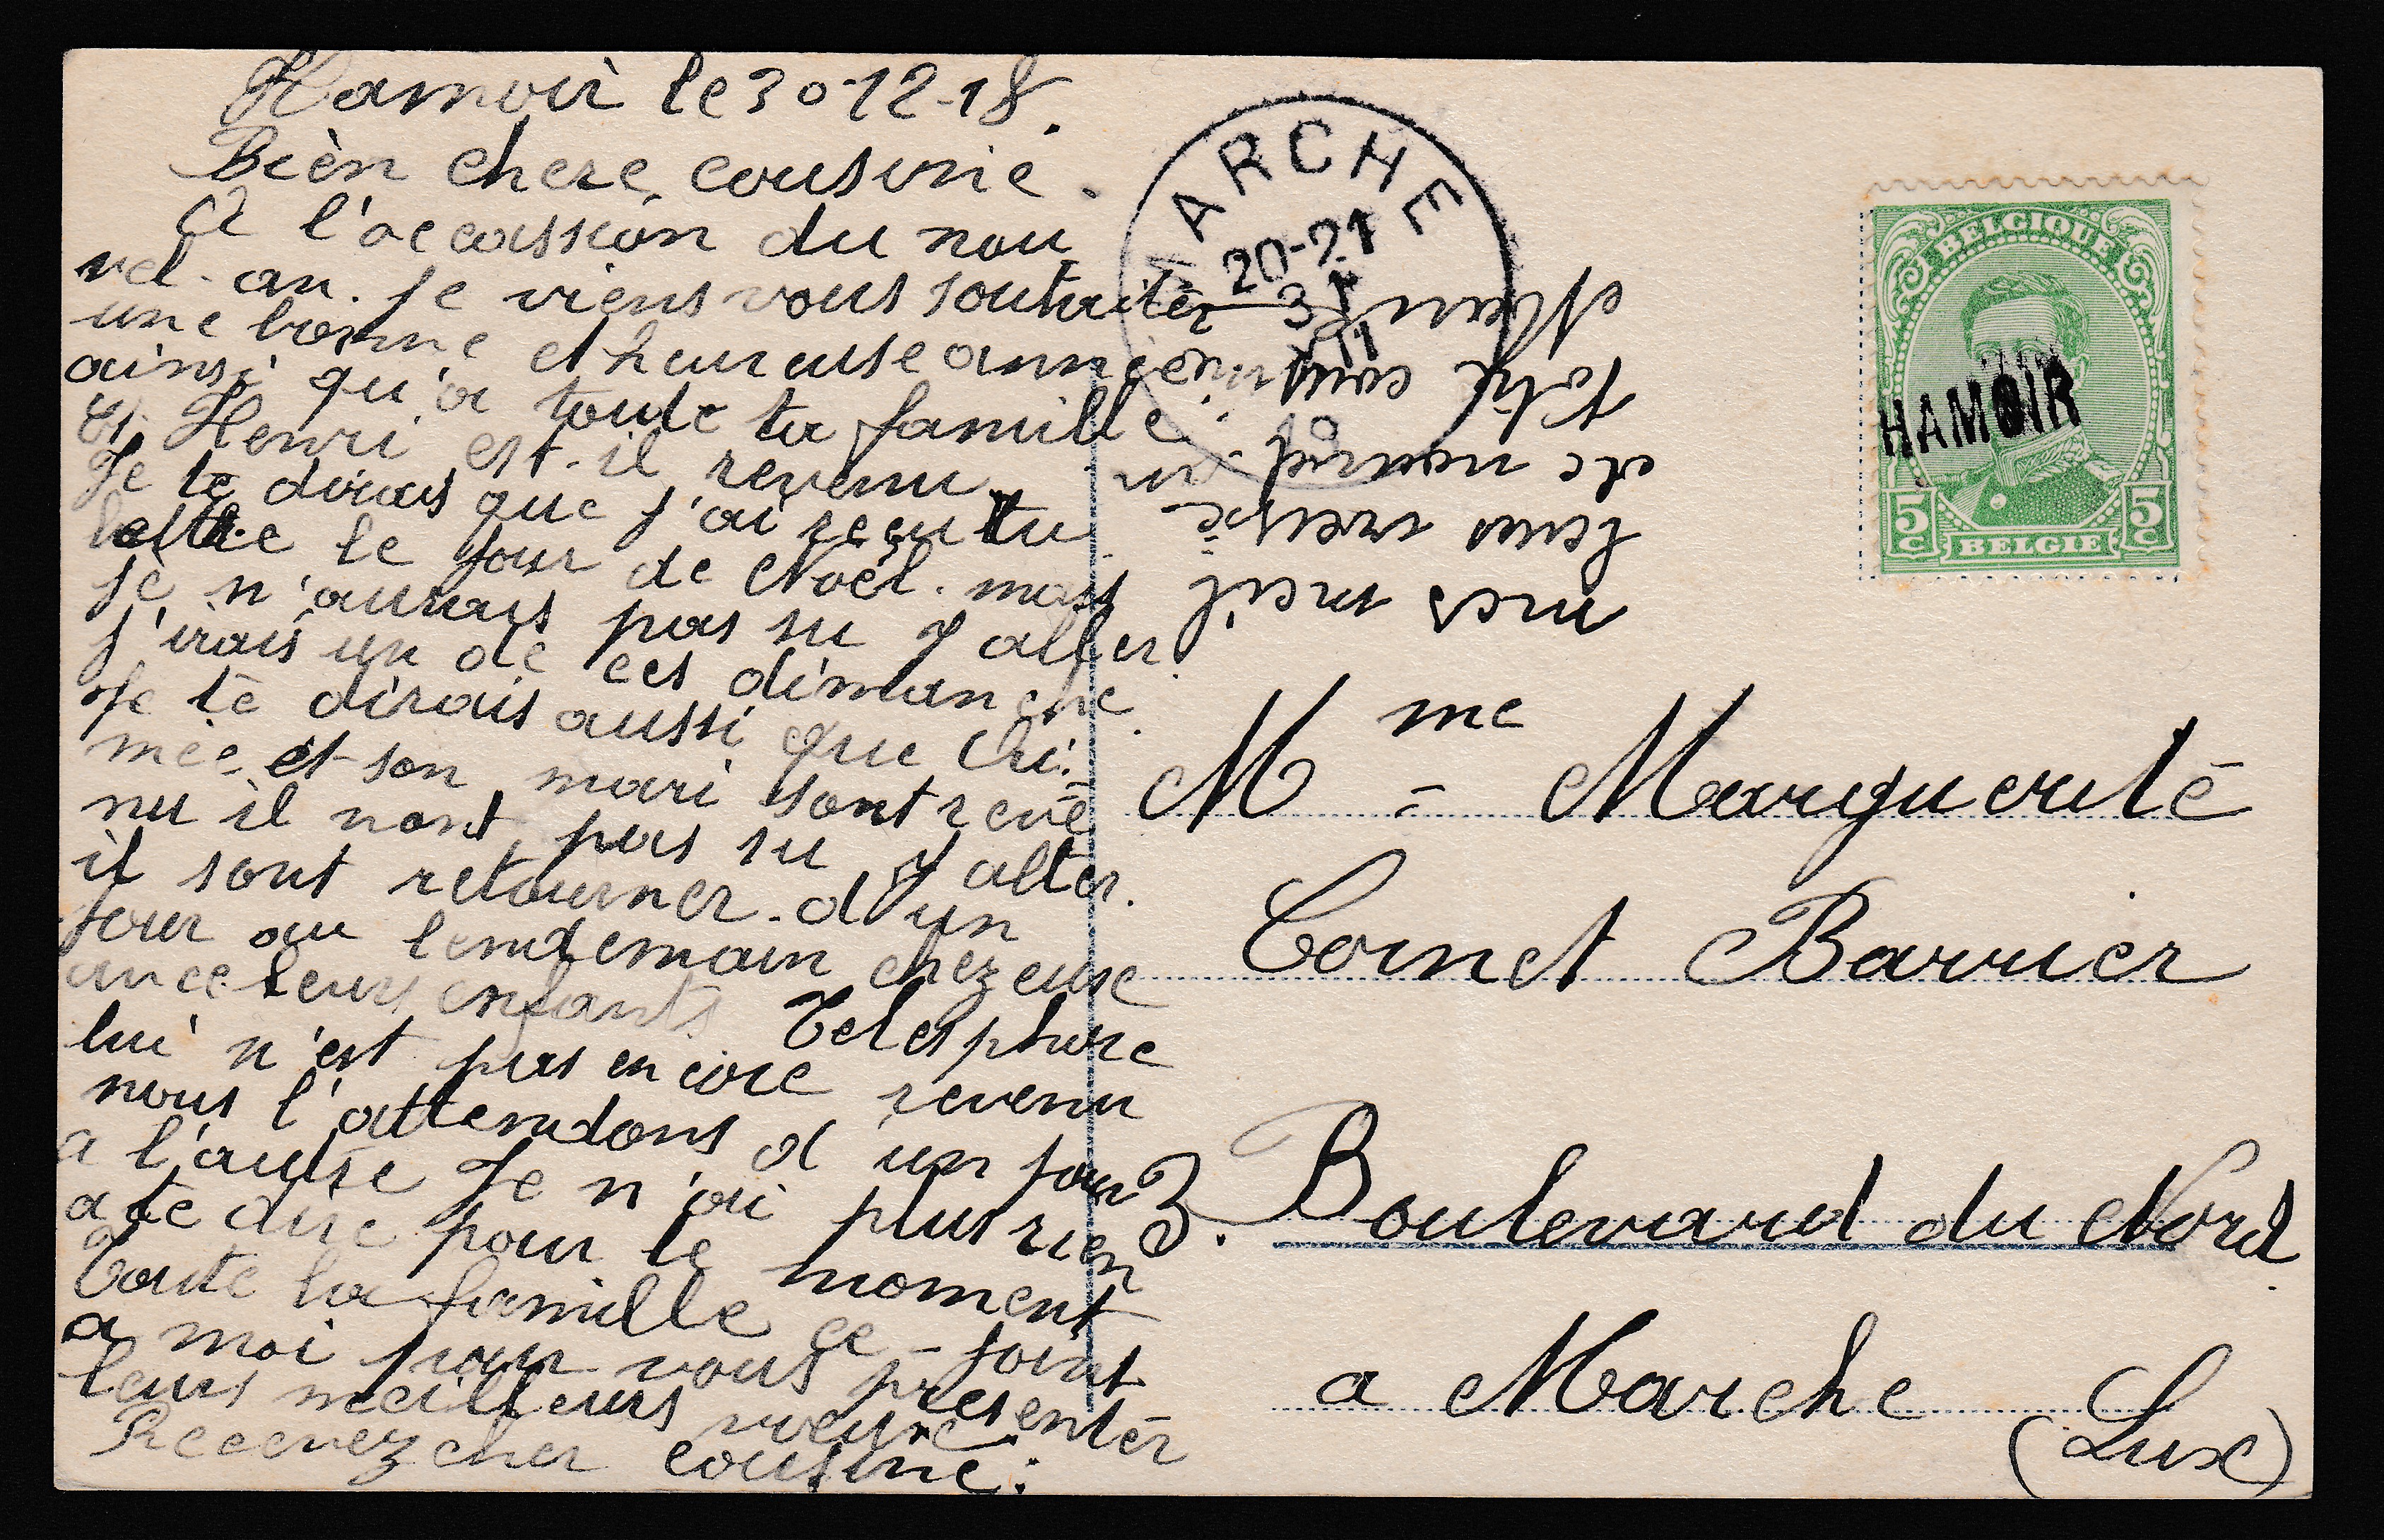 Hamoir le 30-12-18.
Bièn chere cousine.
A l'occassion du nou
vel-an. je viens vous souhaiter
une bonne et heureuse année
ainsi qu'a toute ta famille
Et Henri est-il revenu
Je te dirais que j'ai reçu tu
lettre le jour de Noël. mais
je n'aurais pas su y aller
j'irais un de ces dimanche.
Je te dirais aussi que
mée et son mari sont reve
nu il n'ont pas su y aller.
il sont retourner d'un
jour au lendemain chez euse
avec leurs enfants Telesphore
lui n'est pas encore revenu
nous l'attendons d'un jour
a l'autre Je n'ai plus rien
a te dire pour le moment
Toute la famille ce joint
a moi pour vous présenter
leurs meilleurs vœuxe
Recevez cher cousine:
mes meil
leurs vœuxe
de nouvel-an
Votre cousin
MARCHE
20-21
31
XII
BELGIQUE
HAMOIR
5c 5c
BELGIE
Mme Marguerite
Cornet Barrier
3. Boulevard du Nord
a Marche
(Lux)